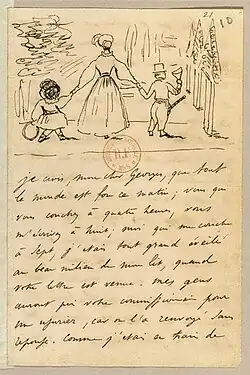 21
10
je crois, mon cher Georges, que tout
le monde est fou ce matin; vous qui
vous couchez à quatre heures, vous
m'écrivez à huit, moi qui me couche
à sept, j'étais tout grand éveillé
au beau milieu de mon lit, quand
votre lettre est venue. mes gens
auront pris votre commissionnaire pour
un usurier, car on l'a renvoyé sans
réponse. Comme j'étais en train de